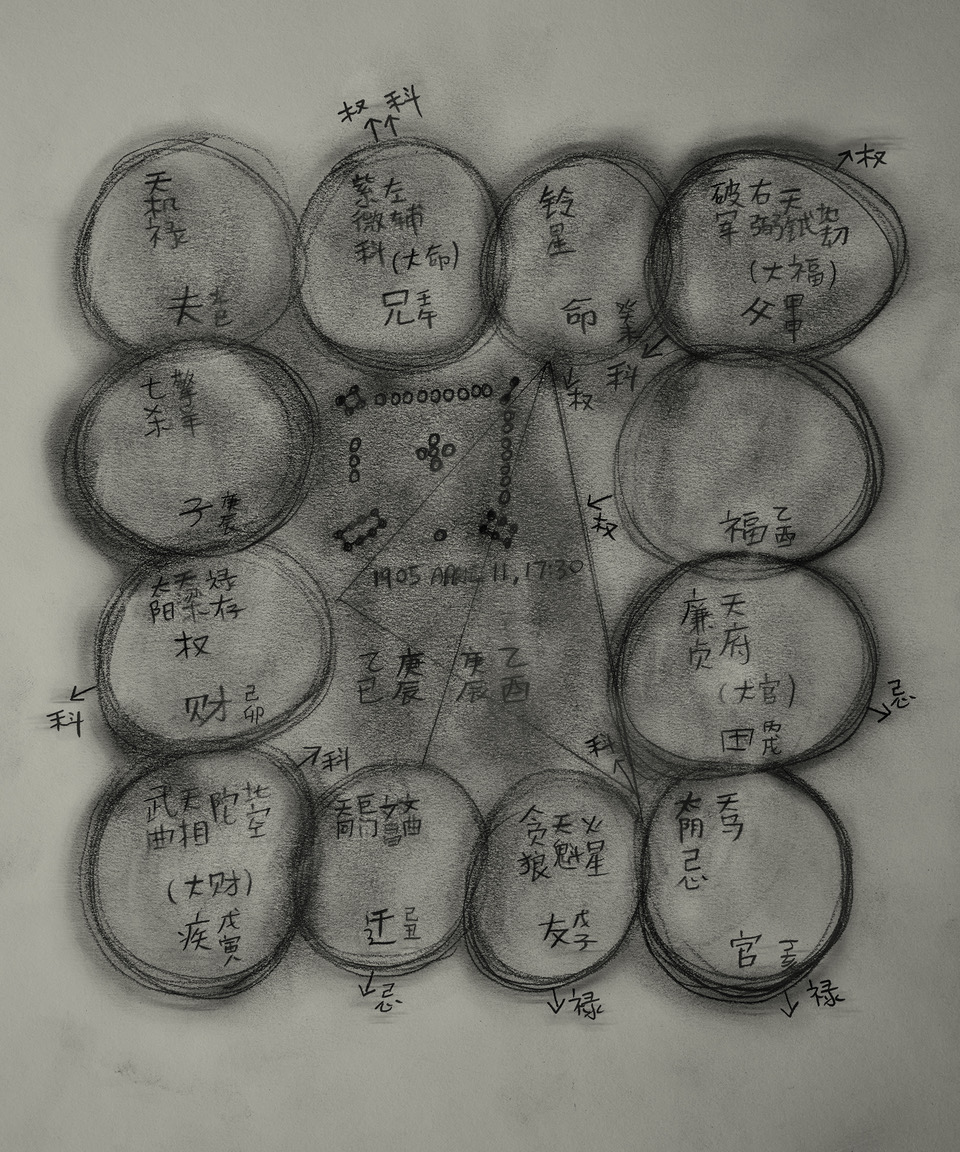 权 科
权
天机禄
夫
紫微科
左辅
(大命)
兄
壬午
铃星
命
破军
右弼
天钺
(大福)
父
科
权
七杀
擎羊
子
庚辰
权
福
乙酉
1905 APRIL 11, 17:30
乙巳
庚辰
庚辰
乙酉
太阳
禄存
权
财
己卯
科
廉贞
天府
(大官)
忌
科
科
武曲
天相
陀
(大财)
疾
戊寅
文曲
迁
己丑
忌
贪狼
天魁
火星
友
戊子
禄
太阴忌
天马
官
禄